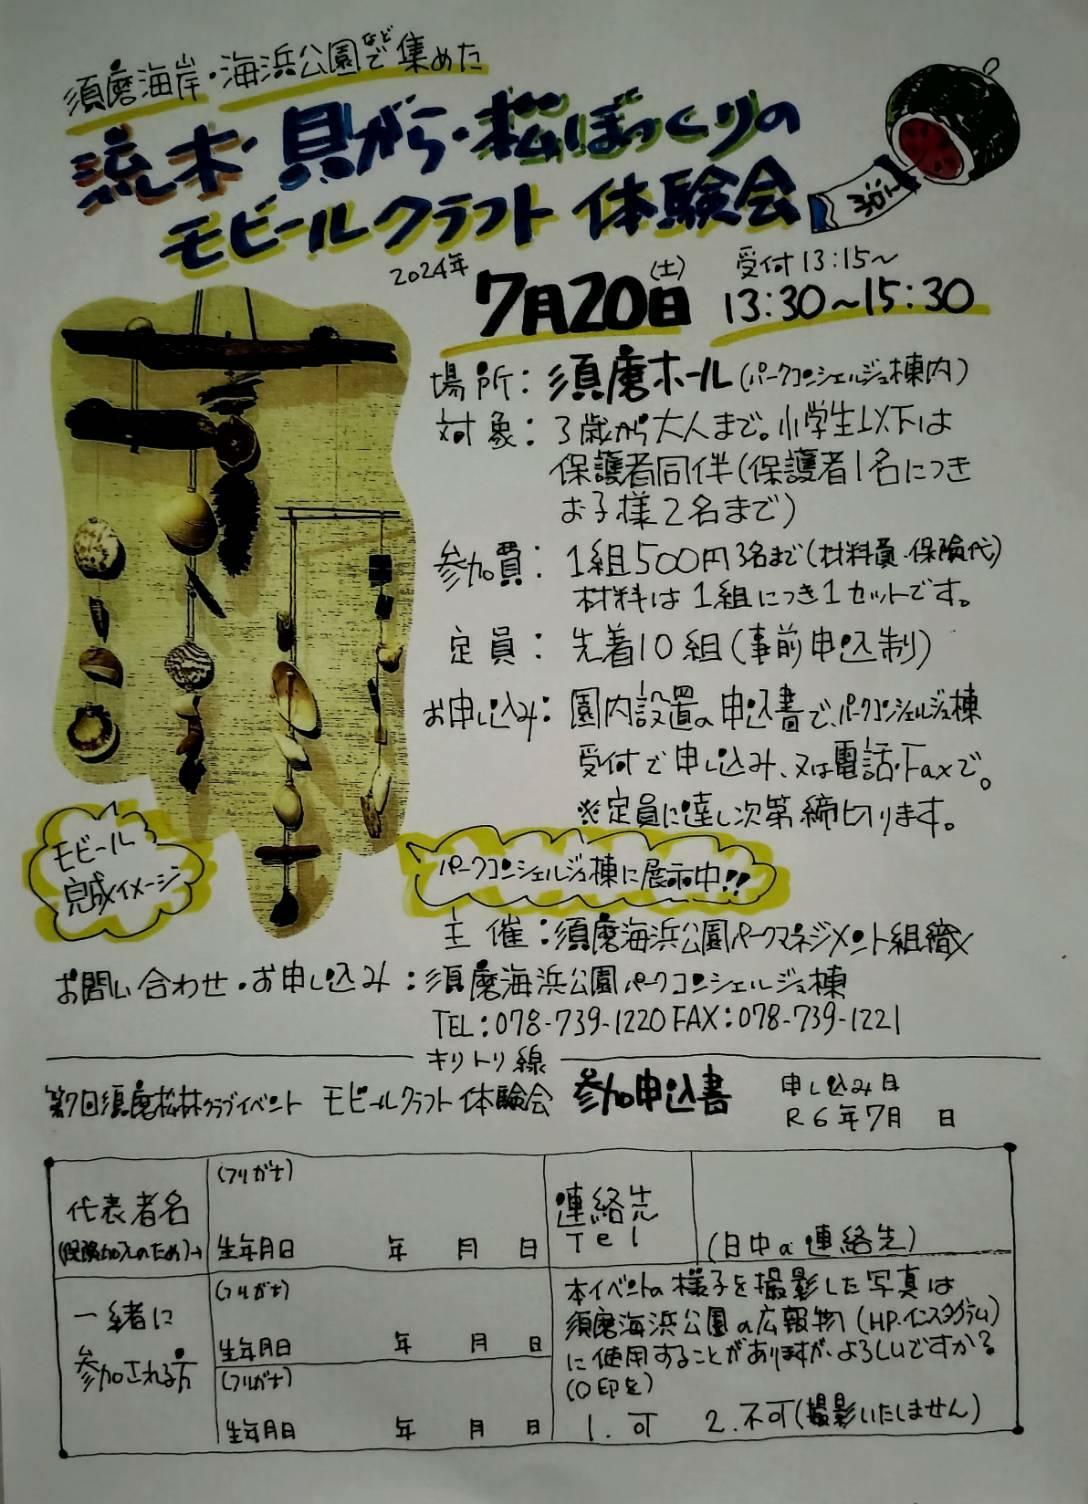 須磨海岸・海浜公園などで集めた
流木・貝がら・松ぼっくりの
モビールクラフト 体験会
2024年 7月20日(土) 受付13:15〜
13:30〜15:30
場所：須磨ホール(パークコンシェルジュ棟内)
対象：3歳から大人まで。小学生以下は
保護者同伴(保護者1名につき
お子様2名まで)
参加費：1組500円3名まで(材料費・保険代)
材料は1組につき1セットです。
定員：先着10組(事前申込制)
お申し込み：園内設置の申込書で、パークコンシェルジュ棟
受付で申し込み、又は電話・Faxで。
※定員に達し次第締め切ります。
モビール
完成イメージ
パークコンシェルジュ棟に展示中!!
主催：須磨海浜公園パークマネジメント組織X
お問い合わせ・お申し込み：須磨海浜公園パークコンシェルジュ棟
TEL：078-739-1220 FAX：078-739-1221
キリトリ線
第7回須磨松林クラブイベント モビールクラフト体験会 参加申込書
申し込み日
R6年7月 日
代表者名
(保険加入のため)→
(フリガナ)
生年月日 年 月 日
連絡先
Tel
(日中の連絡先)
一緒に
参加される方
(フリガナ)
生年月日 年 月 日
(フリガナ)
生年月日 年 月 日
本イベントの様子を撮影した写真は
須磨海浜公園の広報物(HP・インスタグラム)
に使用することがありますが、よろしいですか？
(○印を)
1. 可 2. 不可(撮影いたしません)